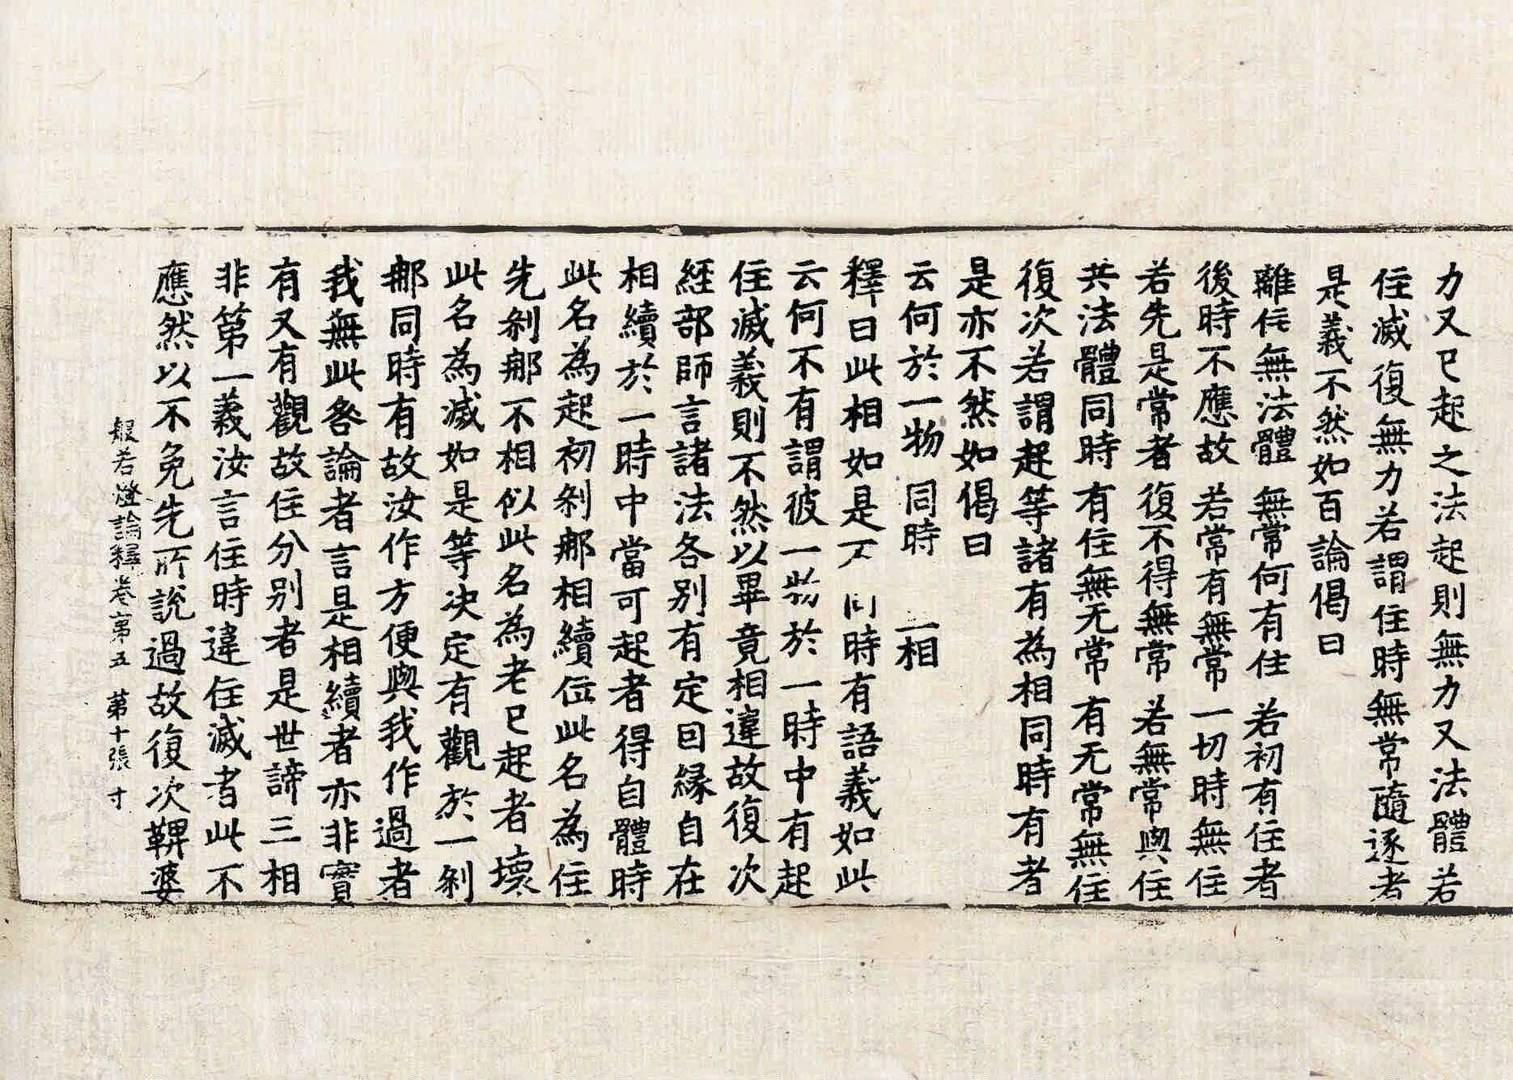 力又已起之法起則無力又法體若
住滅復無力若謂住時無常隨逐者
是義不然如百論偈曰
離住無法體 無常何有住 若初有住者
後時不應故 若常有無常 一切時無住
若先是常者 復不得無常 若無常與住
共法體同時 有住無无常 有无常無住
復次若謂起等諸有為相同時有者
是亦不然如偈曰
云何於一物 同時 相
釋曰此相如是不同時有語義如此
云何不有謂彼一物於一時中有起
住滅義則不然以畢竟相違故復次
經部師言諸法各別有定因緣自在
相續於一時中當可起者得自體時
此名為起初剎那相續位此名為住
先剎那不相似此名為老已起者壞
此名為滅如是等決定有觀於一剎
那同時有故汝作方便與我作過者
我無此咎論者言是相續者亦非實
有又有觀故住分別者是世諦三相
非第一義汝言住時違住滅者此不
應然以不免先所說過故復次鞞婆
般若燈論釋卷第五 第十張 寸